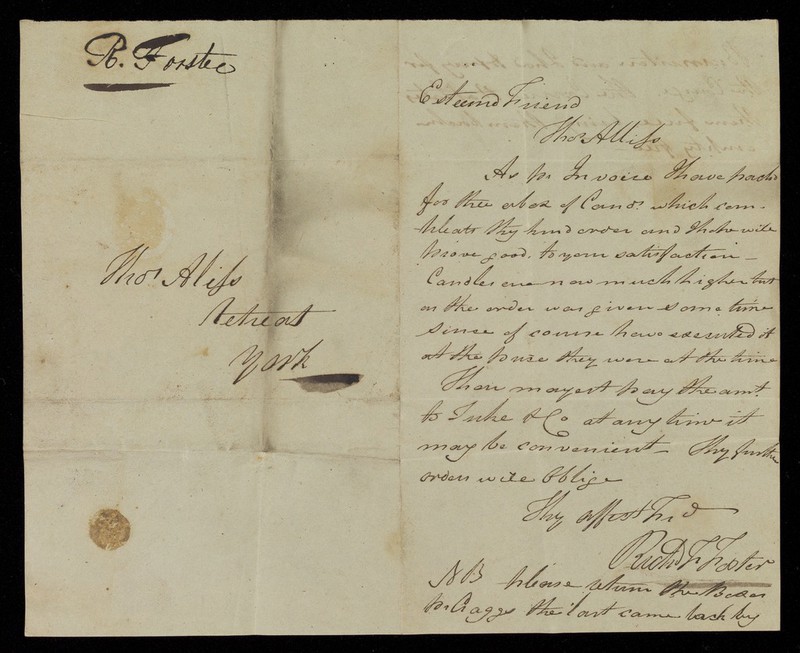 R. Forster
Thos Aliss
Retreat
York
Esteemd Friend
Thos Alliss
As pr Invoice I have packd
for thee a box of Cands. which com-
pleats thy kind order and I hope will
prove good. to your satisfaction -
Candles are now much higher but
as the order was given some time
since of course have executed it
at the price they were at the time
Thou mayest pay the amt.
to Tuke & Co at any time it
may be convenient - Thy further
orders will Oblige
Thy affect Frd
Richd F Foster
NB please return the Boxes
pr Craggs the last came back by